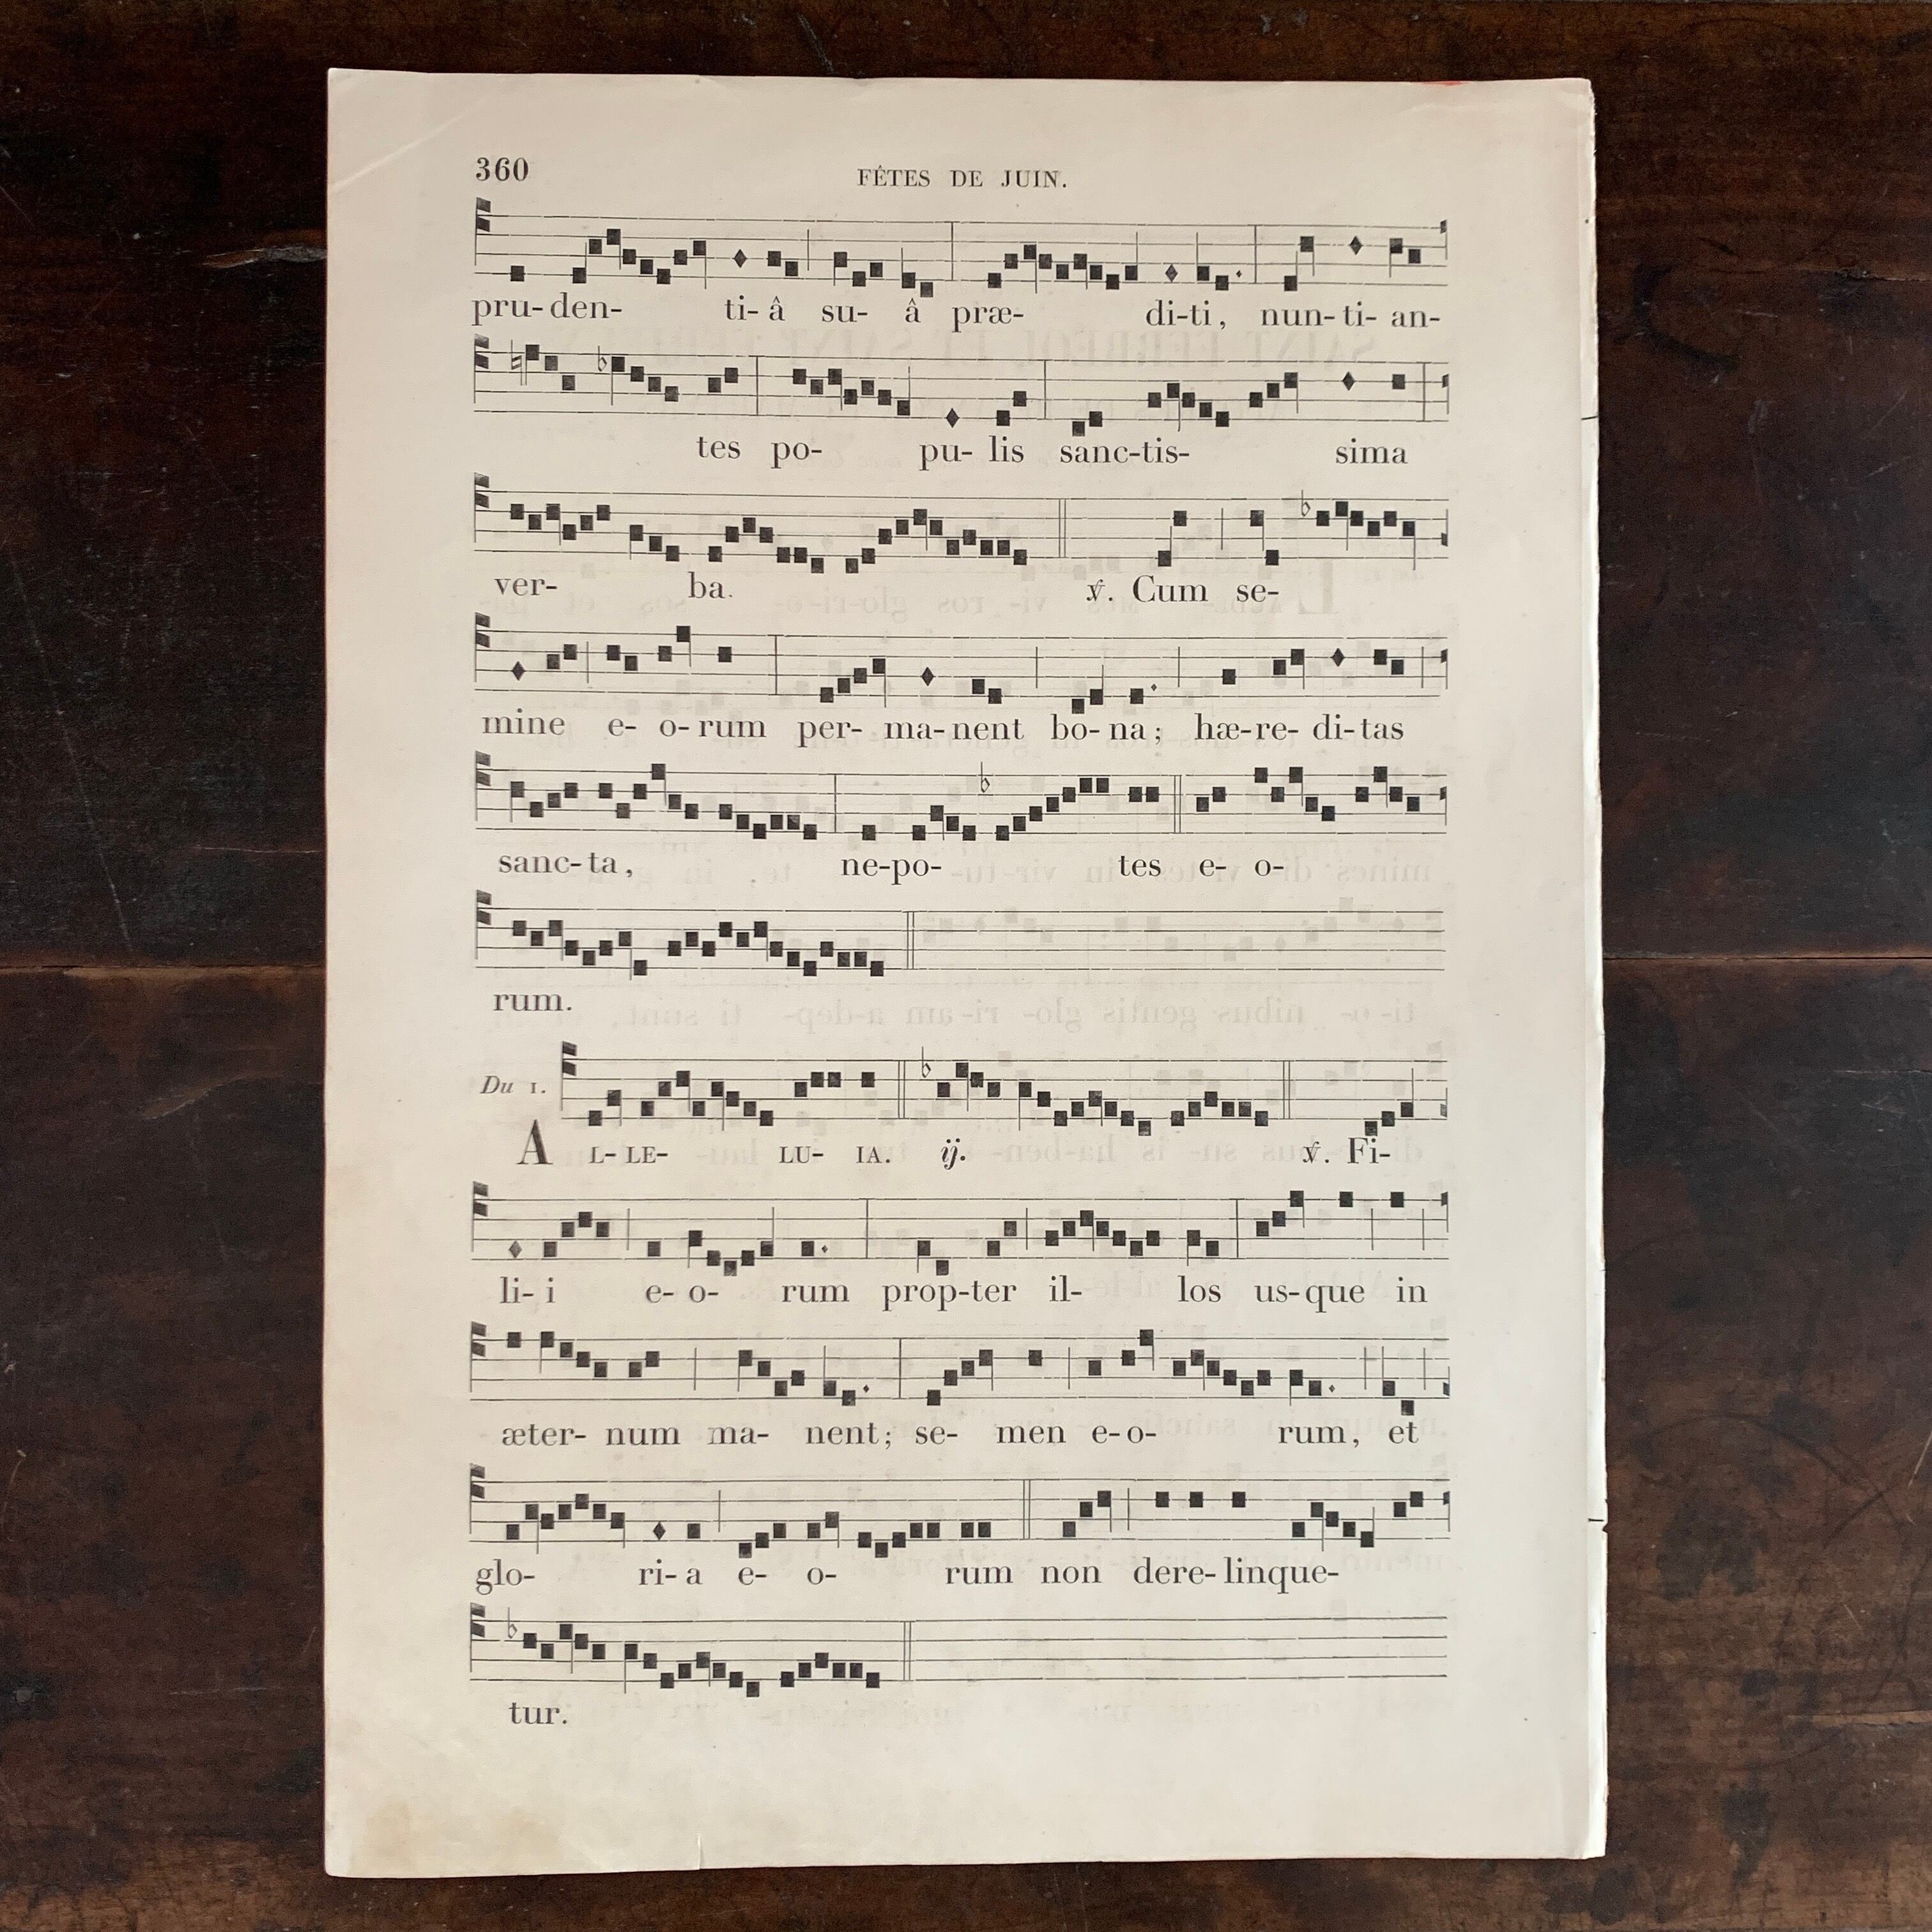 360
FÊTES DE JUIN.
pru-den- ti-â su- â præ- di-ti, nun-ti- an-
tes po- pu- lis sanc-tis- sima
ver- ba. ℣. Cum se-
mine e- o-rum per- ma-nent bo-na; hæ-re-di-tas
sanc-ta, ne-po- tes e- o-
rum.
Du 1.
AL-LE- LU- IA. ij. ℣. Fi-
li- i e- o- rum prop-ter il- los us-que in
æter- num ma- nent; se- men e-o- rum, et
glo- ri- a e- o- rum non dere-linque-
tur.